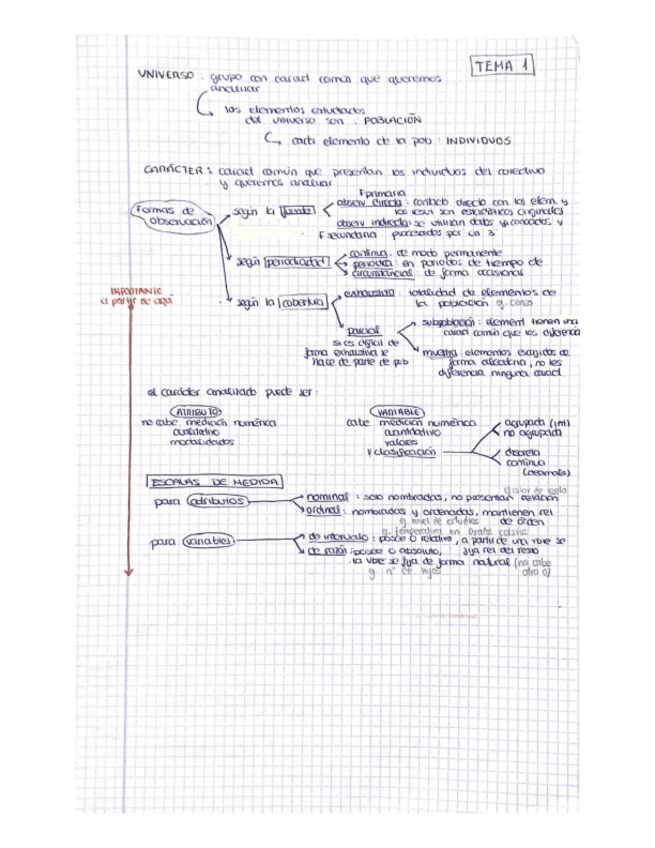 TEMA 1
UNIVERSO : grupo con caract común que queremos
analizar
los elementos estudiados
del universo son : POBLACIÓN
cada elemento de la pob : INDIVIDUOS
CARÁCTER : caract común que presentan los individuos del colectivo
y queremos analizar
Formas de
observación
según la fuente
F primaria
observ directa : contacto directo con los elem. y
los resul son estadísticas originales
observ indirecta : se utilizan datos ya conocidos y
F secundaria procesados por un 3º
según periodicidad
continua : de modo permanente
periódica : en periodos de tiempo de
circunstancial : de forma ocasional
IMPORTANTE
a partir de aquí
según la cobertura
exhaustiva : totalidad de elementos de
la población ej. censo
parcial
si es digital de
forma exhaustiva se
hace de parte de pob
subpoblación : element tienen una
caract común que los diferencia
muestra : elementos escogidos de
forma aleatoria, no les
diferencia ninguna caract
el carácter analizado puede ser :
ATRIBUTO
no cabe medición numérica
cualitativo
modalidades
VARIABLE
cabe medición numérica
cuantitativo
valores
clasificación
agrupada (int)
no agrupada
discreta
continua
(decimales)
ESCALAS DE MEDIDA
para atributos
nominal : solo nombradas, no presentan relación
ej color de pelo
ordinal : nombradas y ordenadas, mantienen rel
ej. nivel de estudios de orden
para variables
ej. temperatura en Grados Celsius
de intervalo : posee 0 relativo, a partir de una vble se
fija rel del resto
de razón : posee 0 absoluto,
la vble se fija de forma natural (no cabe
otro 0)
ej. nº de hijos